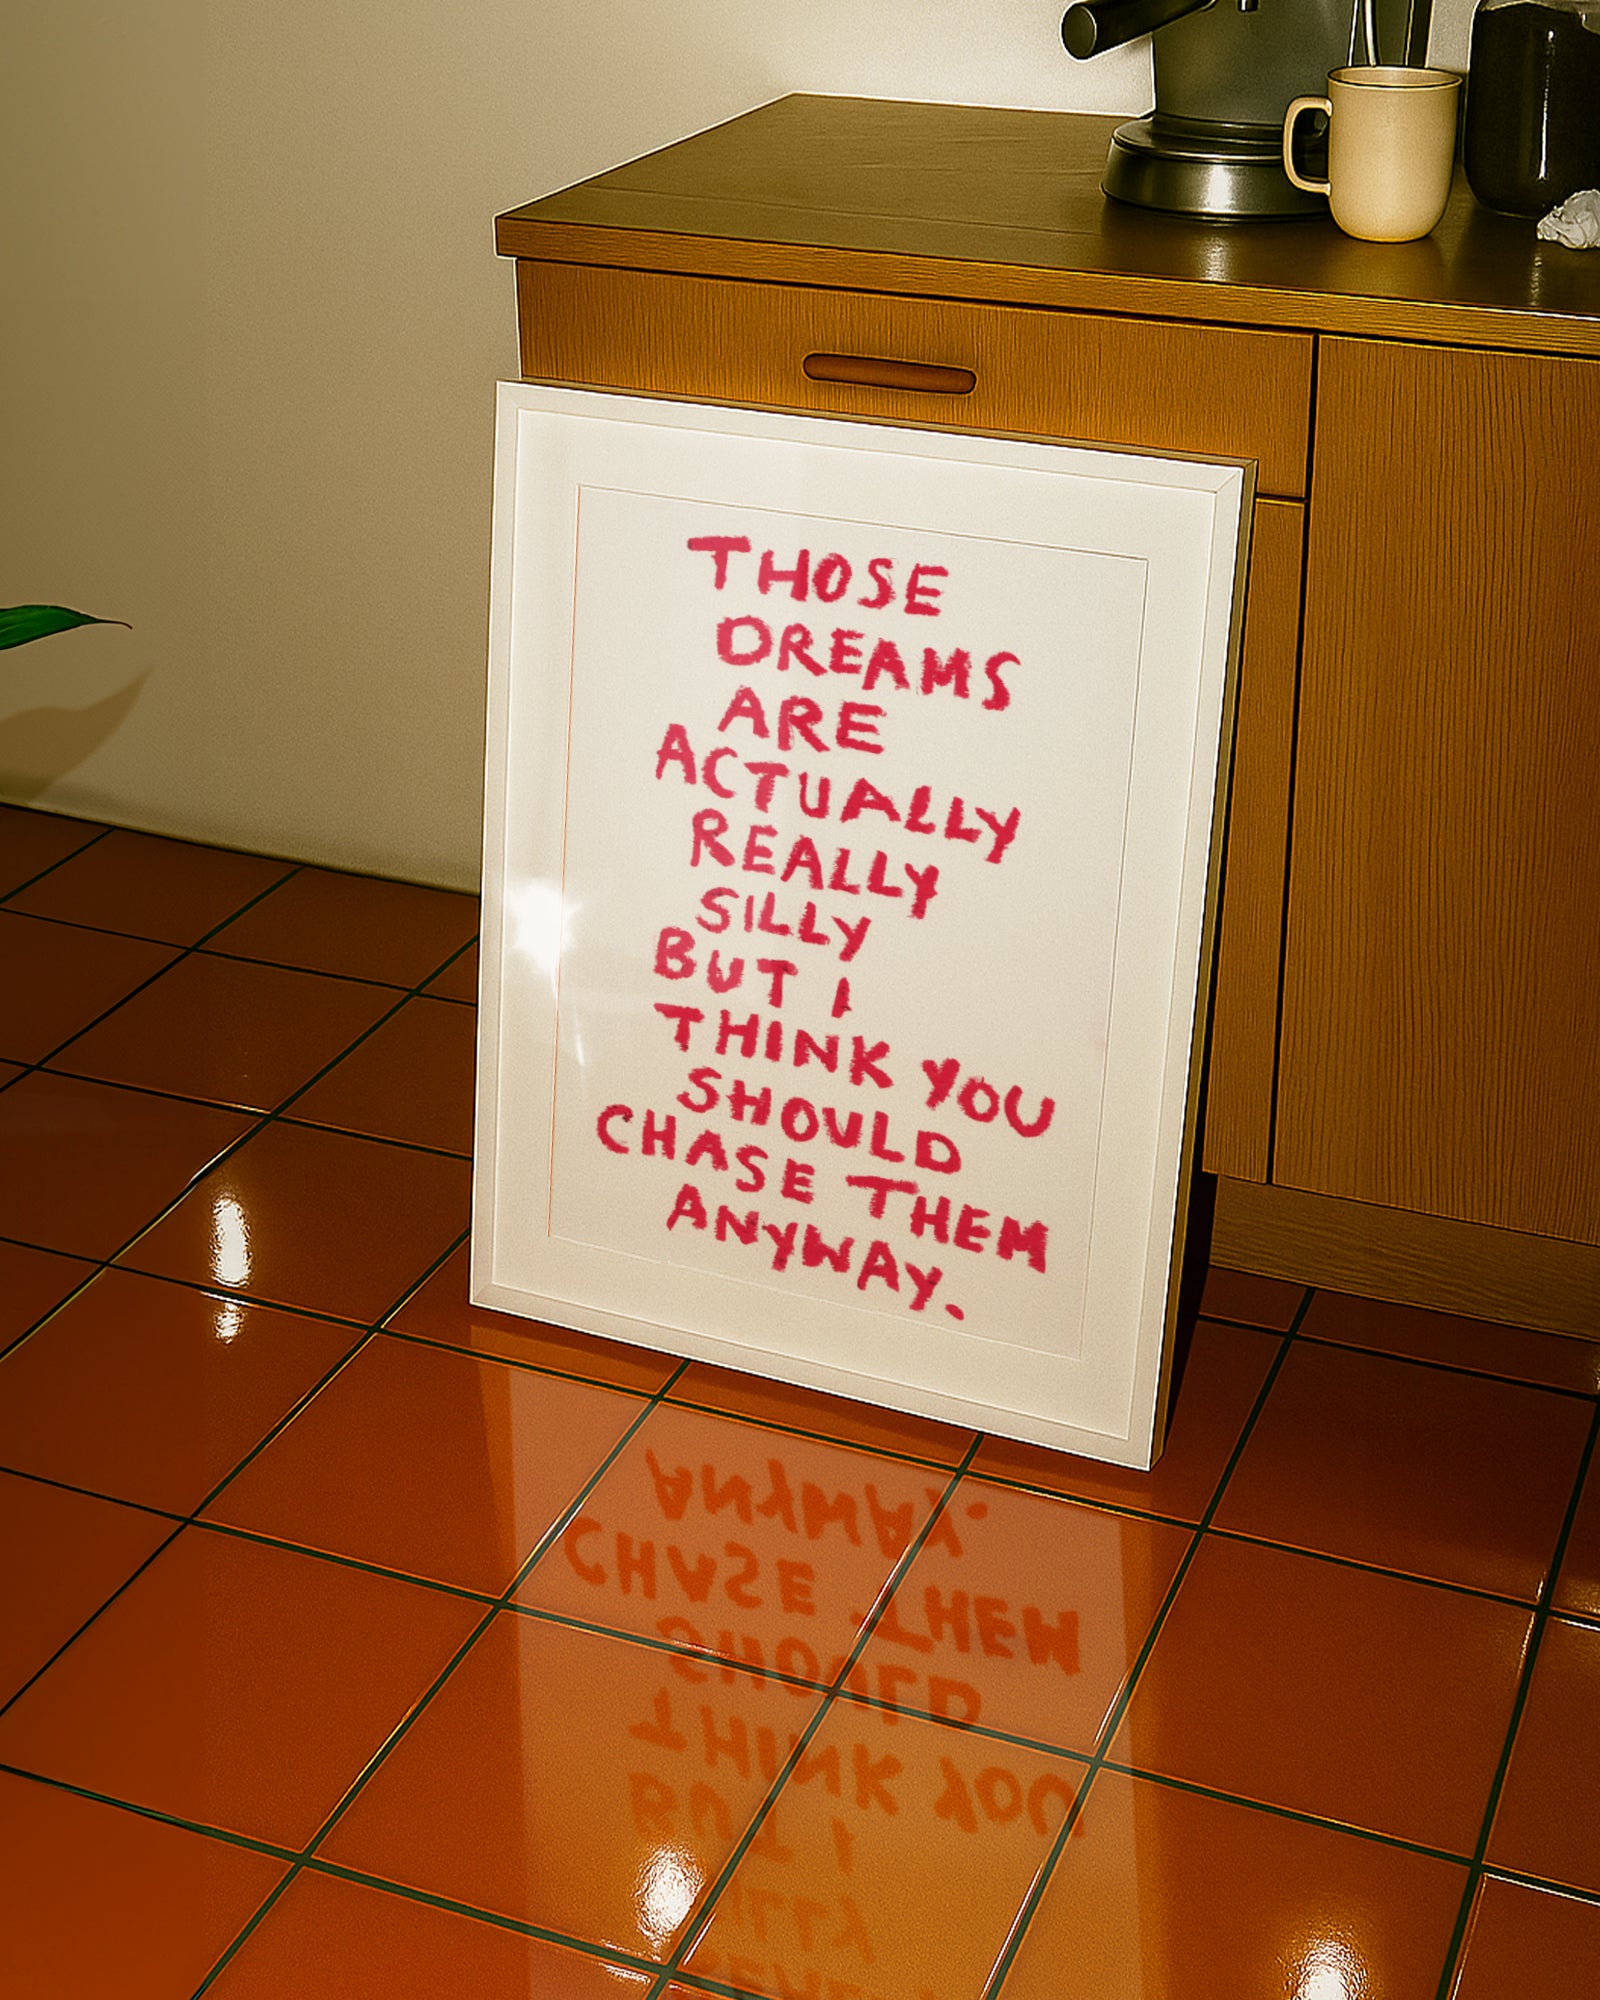 THOSE
DREAMS
ARE
ACTUALLY
REALLY
SILLY
BUT I
THINK YOU
SHOULD
CHASE THEM
ANYWAY.